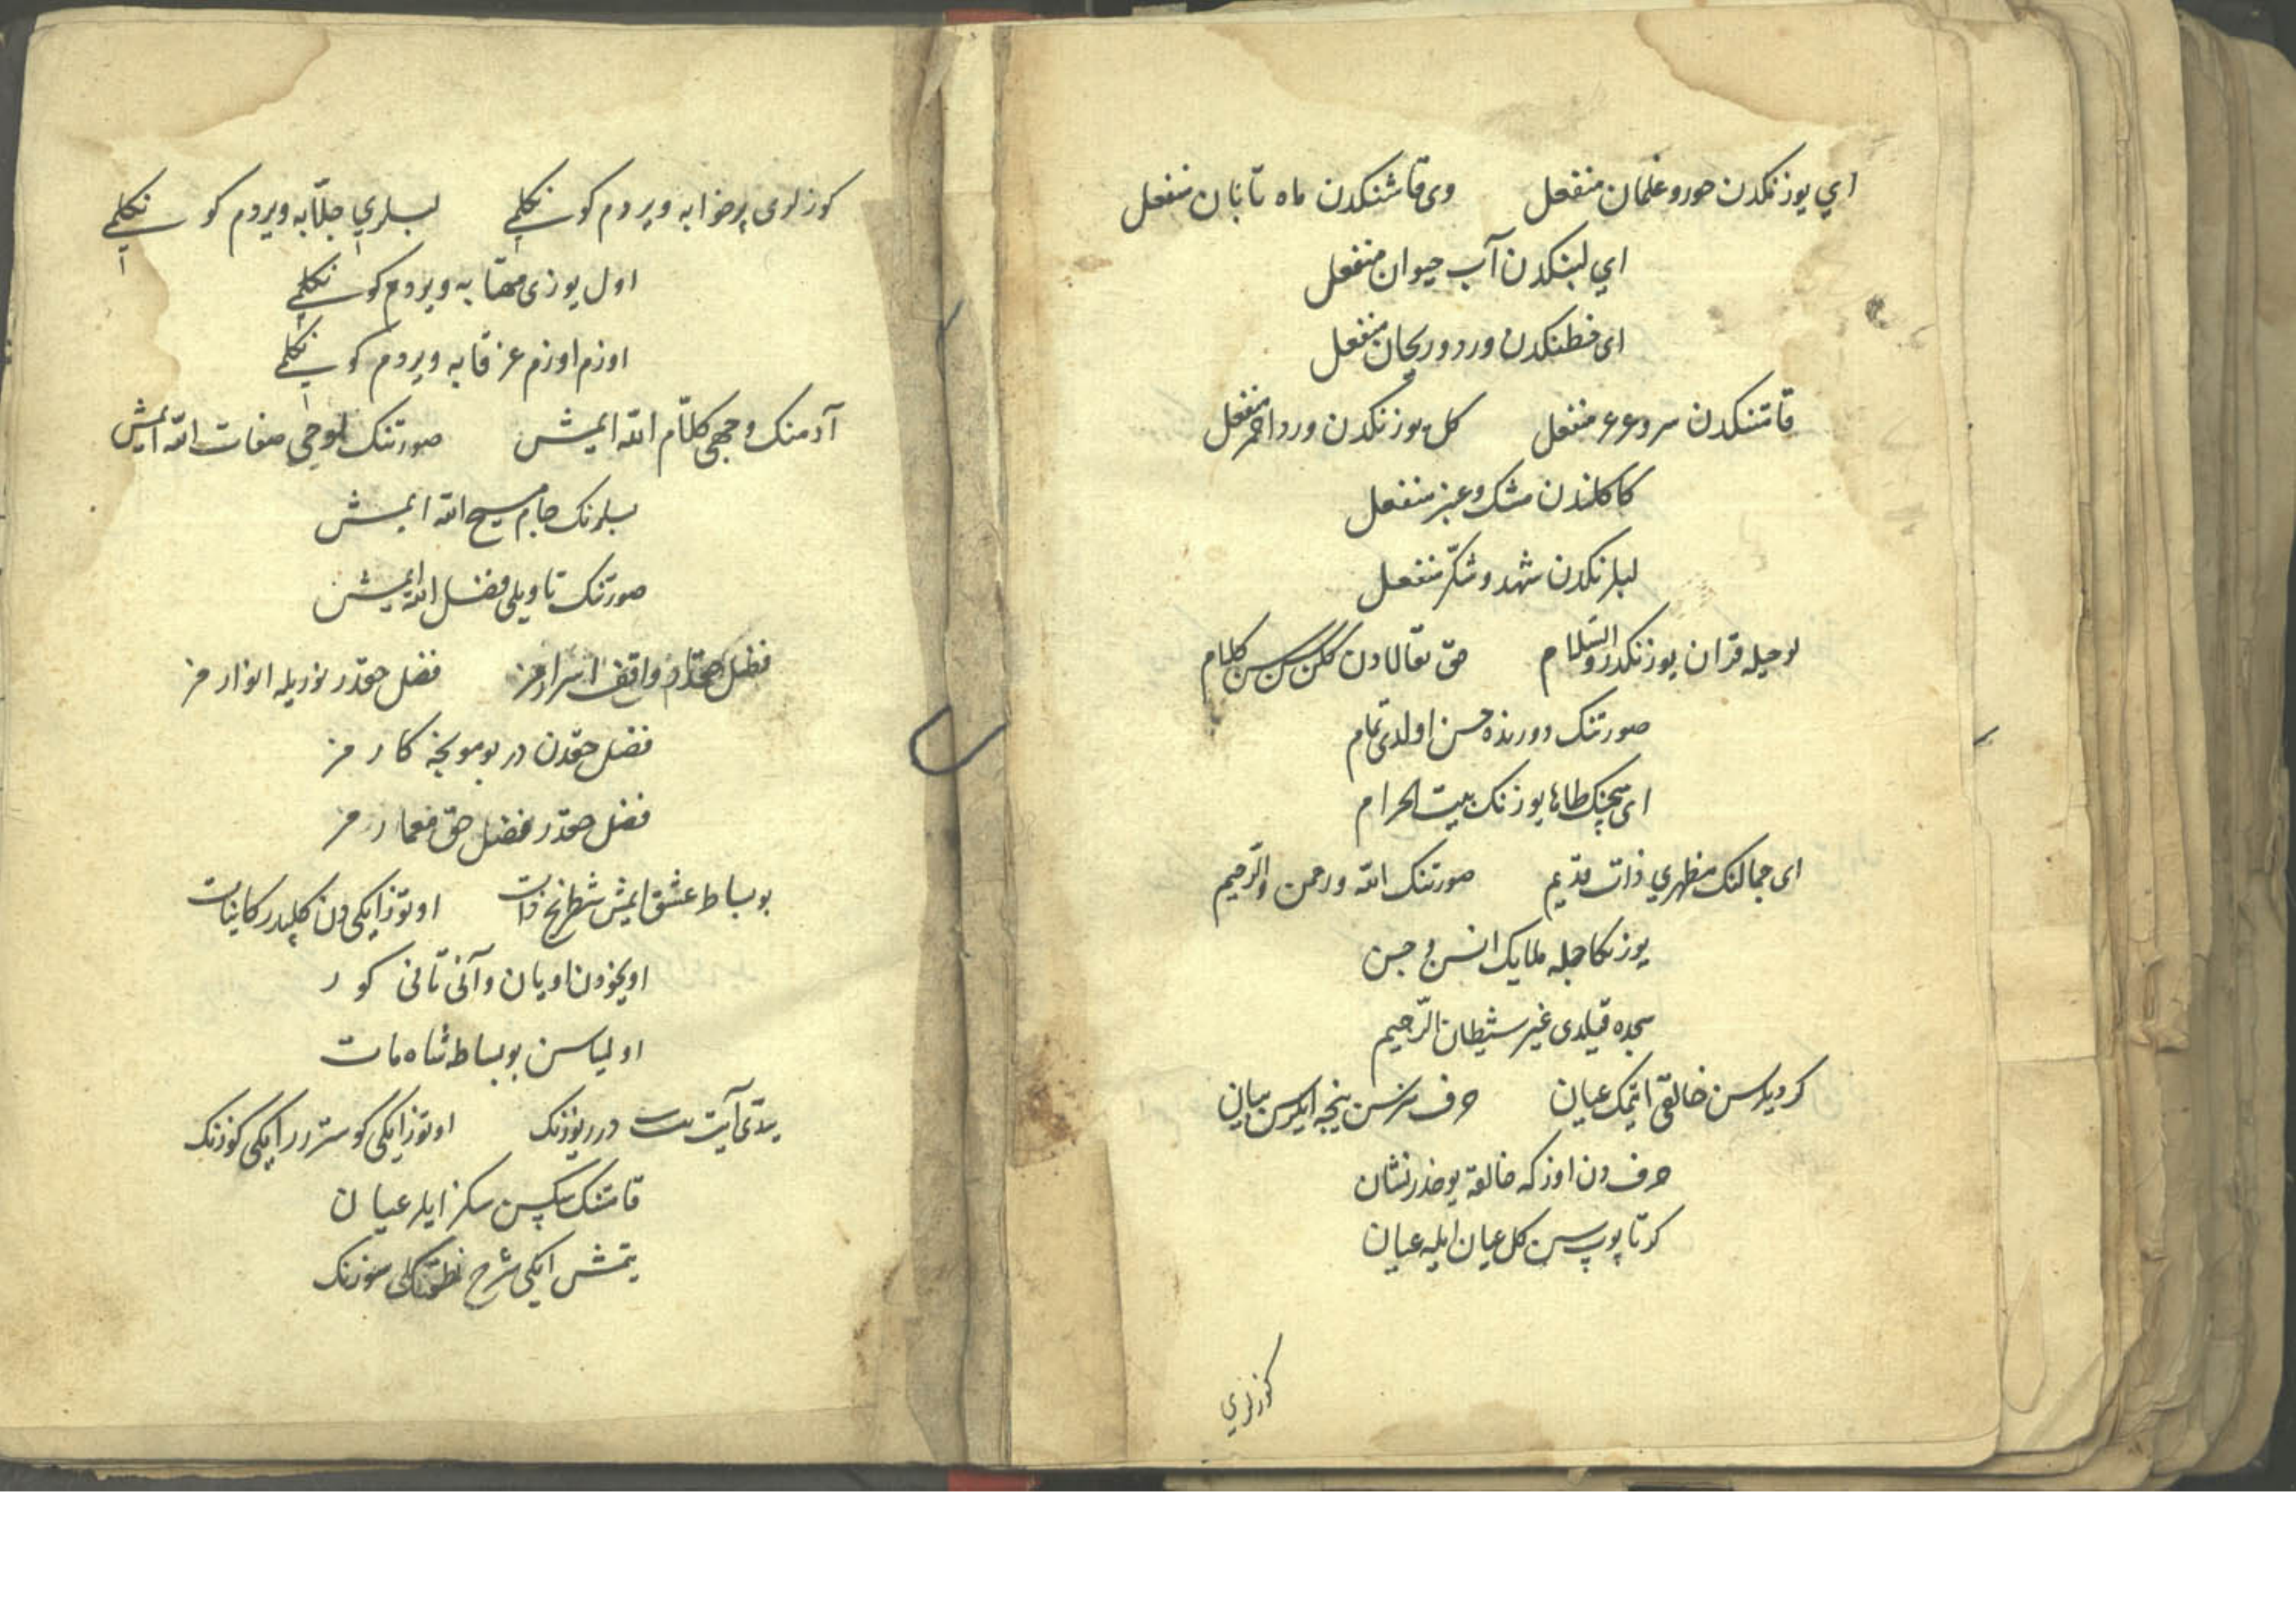 اي يوزنكدن حور و غلمان منفعل وى قاشنكدن ماه تابان منفعل
اي لبنكدن آب حيوان منفعل
اى خطنكدن ورد و ريحان منفعل
قاتنكدن سرو عرعر منفعل كل يوزنكدن ورد احمر منفعل
كاكلندن مشك و عنبر منفعل
لبلرنكدن شهد و شكّر منفعل
لوحيله قران يوزنكدر والسّلام حق تعالادن كلن سن سن كلام
صورتنك دورنده حسن اولدى تمام
اى سچنك طاها يوزنك بيت الحرام
اى جمالنك مظهري ذات قديم صورتنك الله و رحمن والرّحيم
يوزنكا جمله ملايك انس و جن
سجده قيلدى غير شيطان الرّجيم
كر ديلرسن خالقى ايتمك عيان حرف سز سن نيجه ايلرسن بيان
حرف دن اوزكه خالقه يوخدر نشان
كر تاپوپ سن كل عيان ايله عيان
كوزلري
كوزلرى پرخوابه ويردم كونكلمي لبلري جلّابه ويردم كونكلمي
اول يوزى مهتابه ويردم كونكلمي
اوزم اوزم عزقابه ويردم كونكلمي
آدمنك وجهى كلام الله ايمش صورتنك لوحى صفات الله ايمش
لبلرنك جام مسيح الله ايمش
صورتنك تاويلى فضل الله ايمش
فضل حقدر واقف اسرارمز فضل حقدر نوريله انوارمز
فضل حقدن در بو موبخه كارمز
فضل حقدر فضل حق معمارمز
بو بساط عشق ايمش شطرنج ذات اوتوز ايكى دن كلپدر كاينات
اويخودن اويان وآنى تانى كور
اولمياسن بو بساط شاه مات
يدّى آيت در يوزنك اوتوز ايكى كوسترر ايكى كوزنك
قامتنك سكسن سكز ايلر عيان
يتمش ايكى شرح نطقنكلى سوزنك